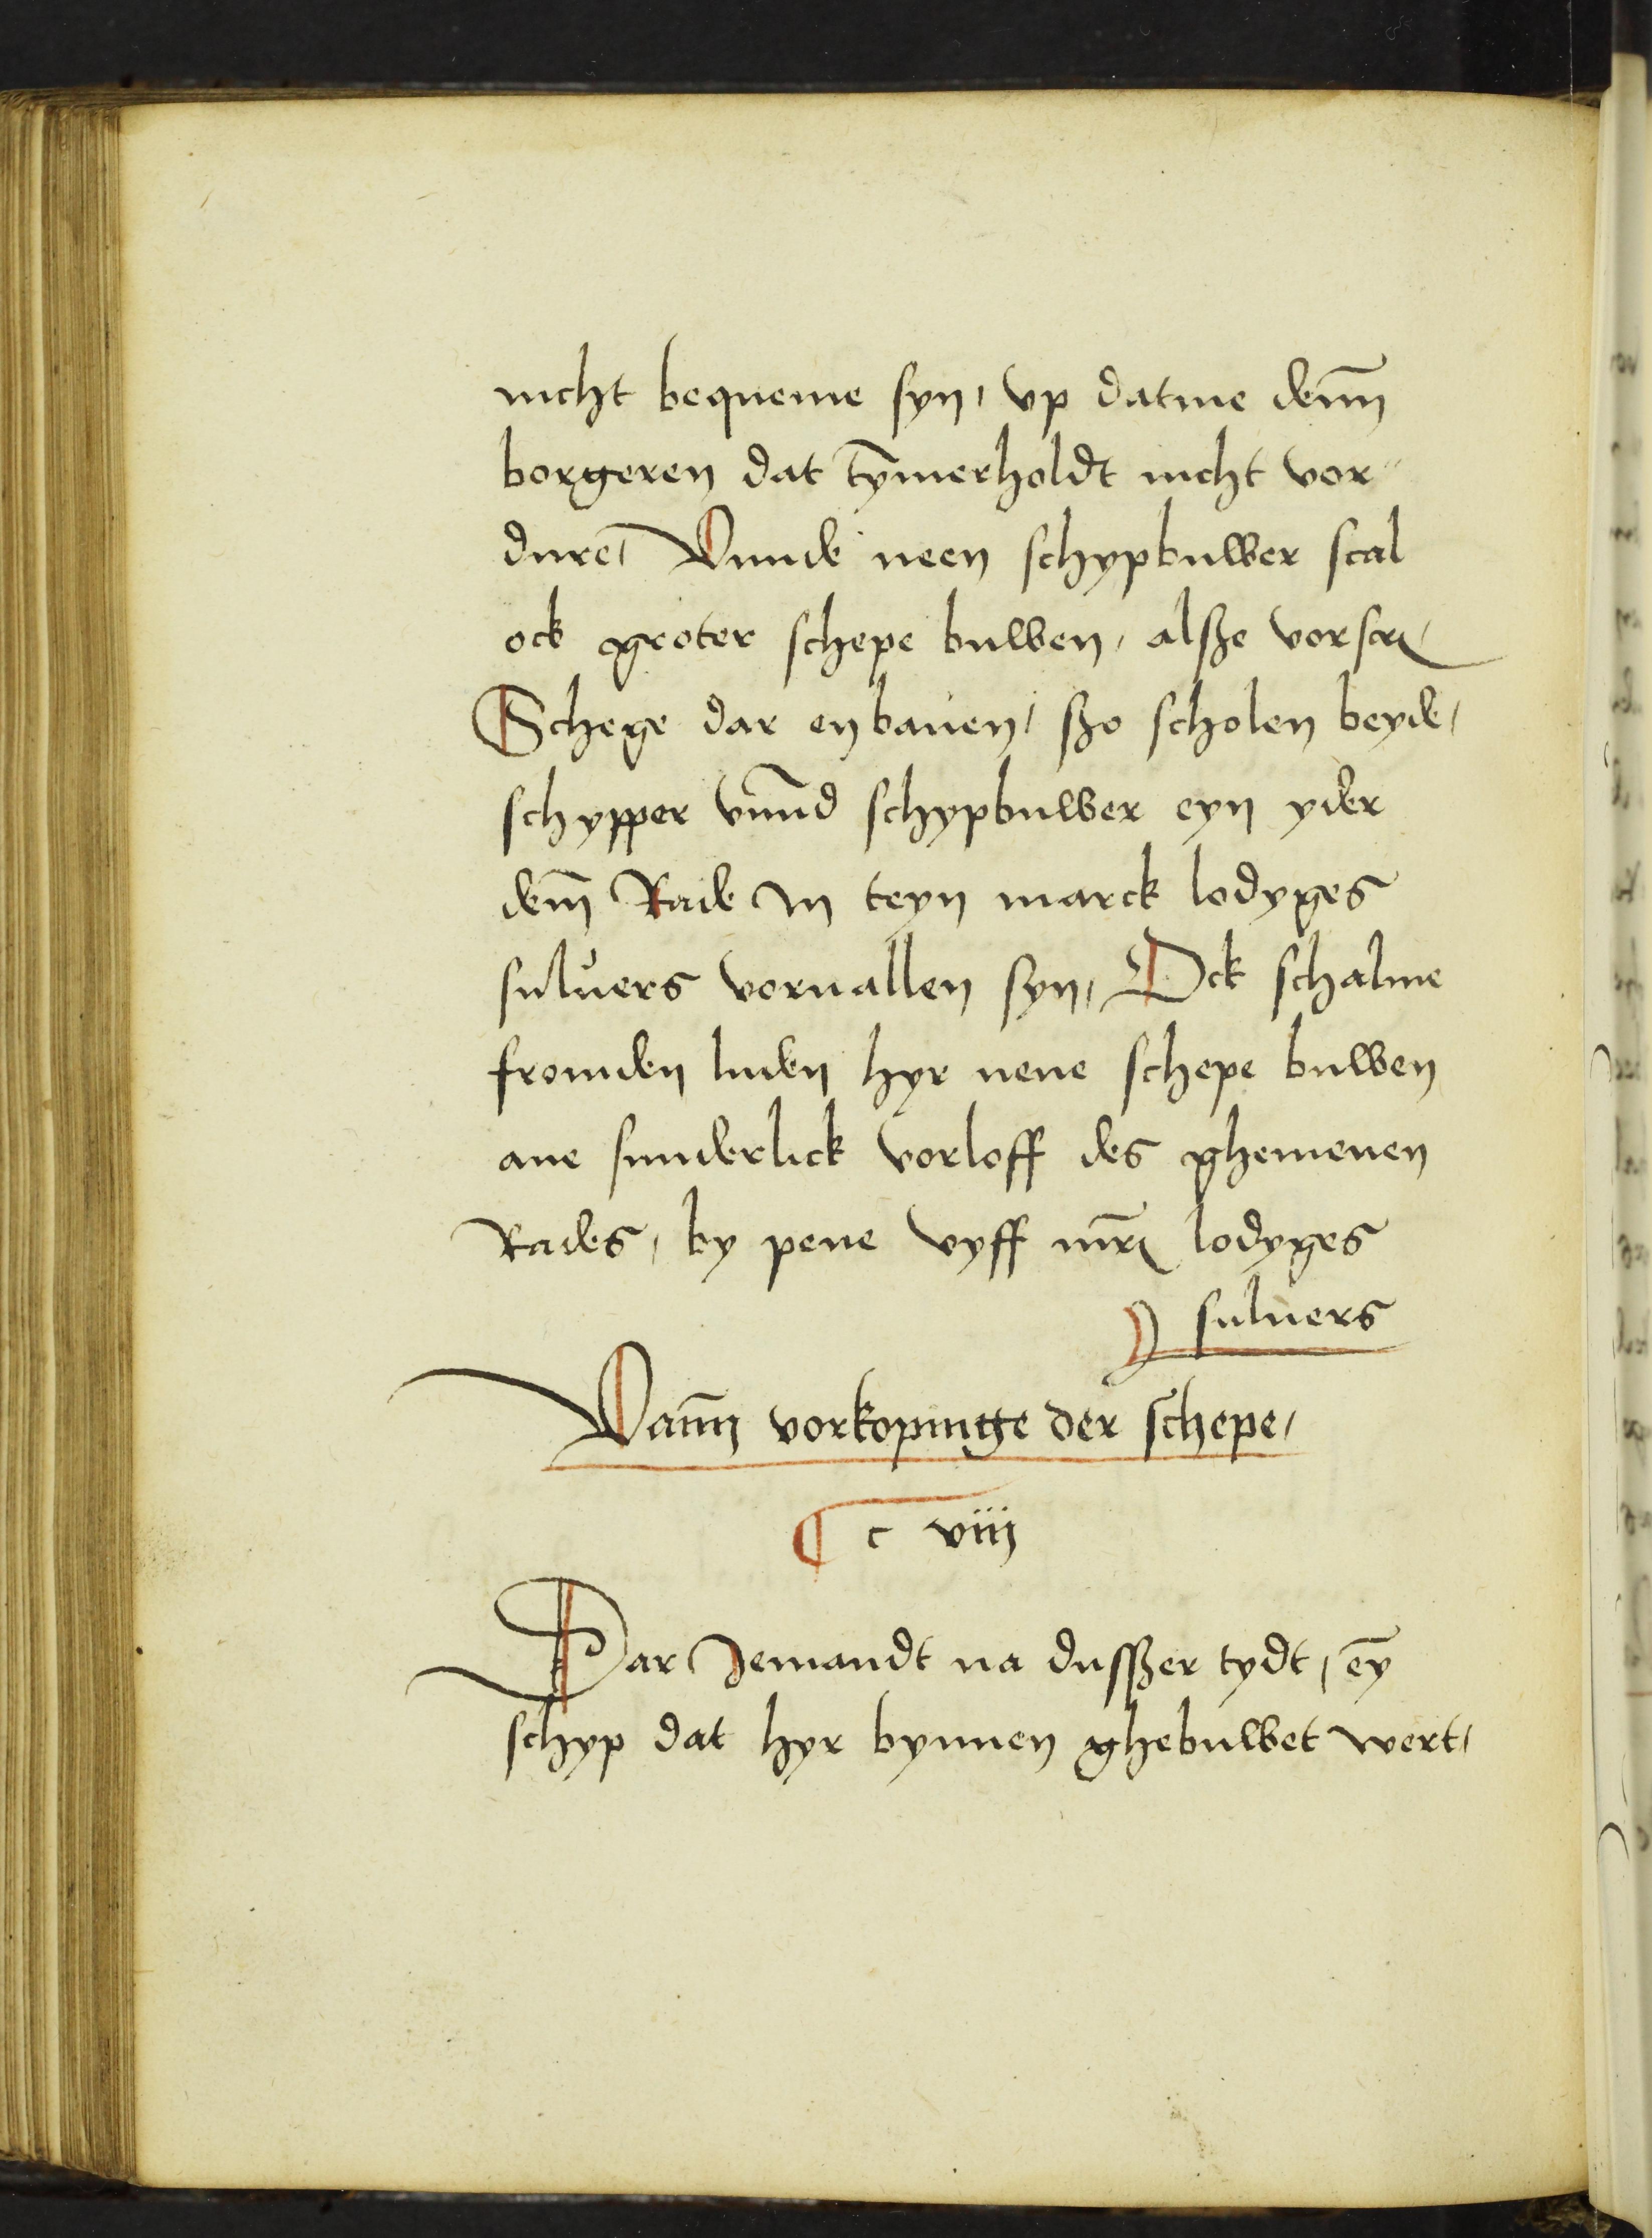 nicht bequeme syn, vp datme dem̄
borgeren dat tȳmerholdt nicht vor¬
durē, Vnnde neen schypbuwer scal
ock groter schepe buwen, alsze vorscr,
Schege dar en bauen, szo scholen beyde,
schypper vnnd̄ schypbuwer eyn yder
dem̄ Rade in teyn marck lodyges
suluers voruallen syn, Ock schalme
fromden luden hyr nene schepe buwen
ane sunderlick vorloff des ghemenen
Rades, by pene vyff mr̄ lodyges
suluers
Vann̄ vorkopinge der schepe,
¶ c viij
Dar Jemandt na dusszer tydt, eȳ
schyp dat hyr bynnen ghebuwet wert,